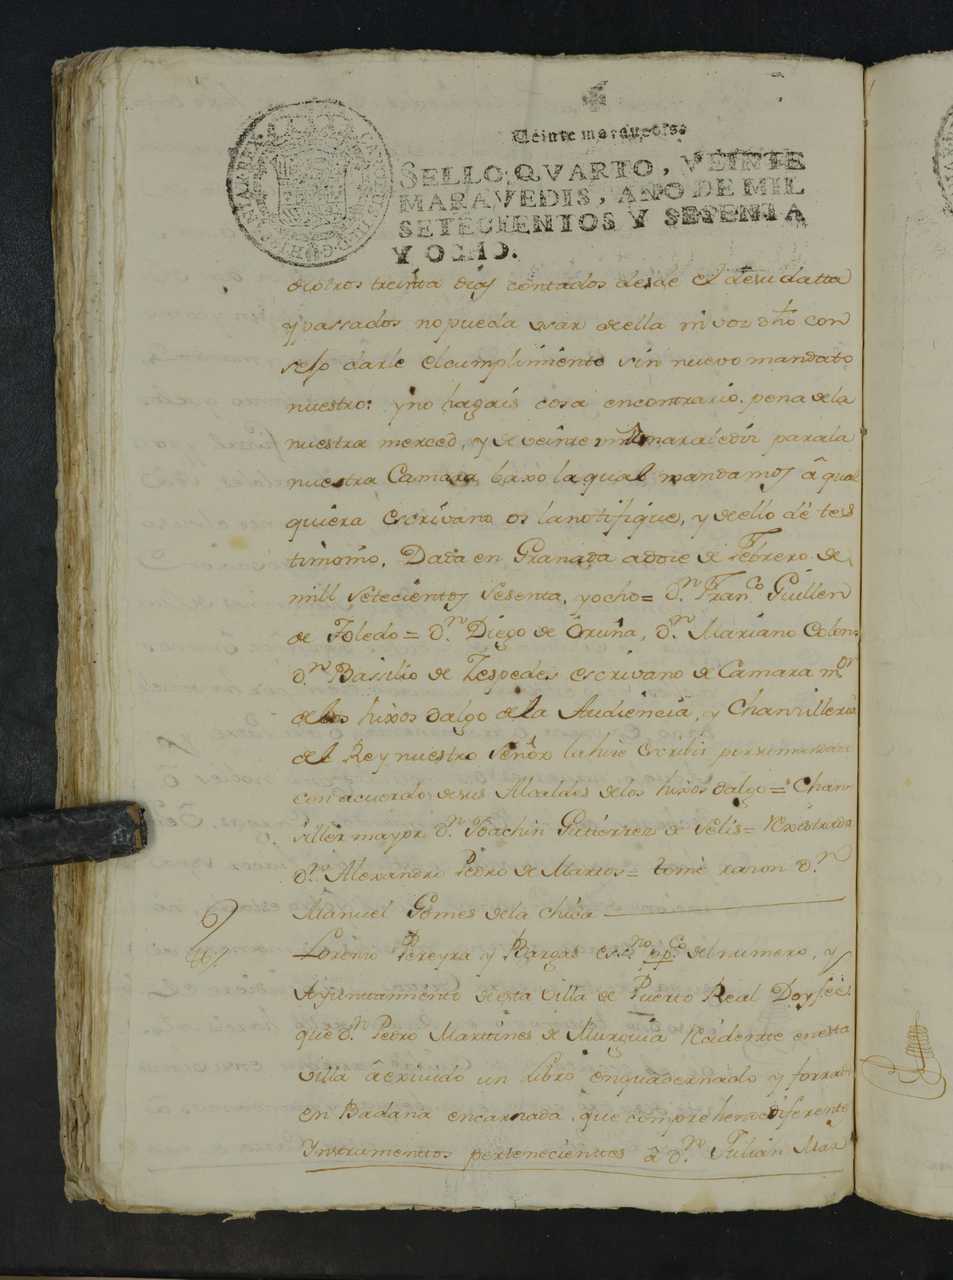 Veinte maravedis.
SELLO QVARTO, VEINTE
MARAVEDIS, AÑO DE MIL
SETECIENTOS Y SETENTA
Y OCHO.
otros treinta dias contados desde el de su datta
y passados no pueda usar de ella ni vos dho con
sejo darle el cumplimiento sin nuevo mandato
nuestro: y no hagais cosa encontrario. pena de la
nuestra merced, y de veinte mill maravedis para la
nuestra Camara, baxo la qual mandamos â qual
quiera escrivano os la notifique, y de ello dé tes
timonio. Dada en Granada a doze de Febrero de
mill setecientos sesenta, y ocho = Dn. Franco. Guillen
de Toledo = Dn. Diego de Oruña, Dn. Mariano Colon
Dn. Bassilio de Zespedes escrivano de Camara mor.
de los hixos dalgo de la Audiencia, y Chanzilleria
del Rey nuestro Señor la hize escribir por su mandado
con acuerdo de sus Alcaldes de los hixos dalgo = Chan
siller mayor Dn. Joachin Gutierrez de Selis = Rexistrada
Dn. Alexandro Pedro de Martos = tomè razon Dn.
Manuel Gomes de la Chica
Lorenso Pereyra y Bargas essno. ppco. del numero, y
Ayuntamiento de esta Villa de Puerto Real Doy feè
que Dn. Pedro Martines de Murguia Residente en esta
Villa â exivido un Libro enquadernado y forrado
en Badana encarnada, que comprehende diferentes
Ynstrumentos pertenecientes â Dn. Julian Mar